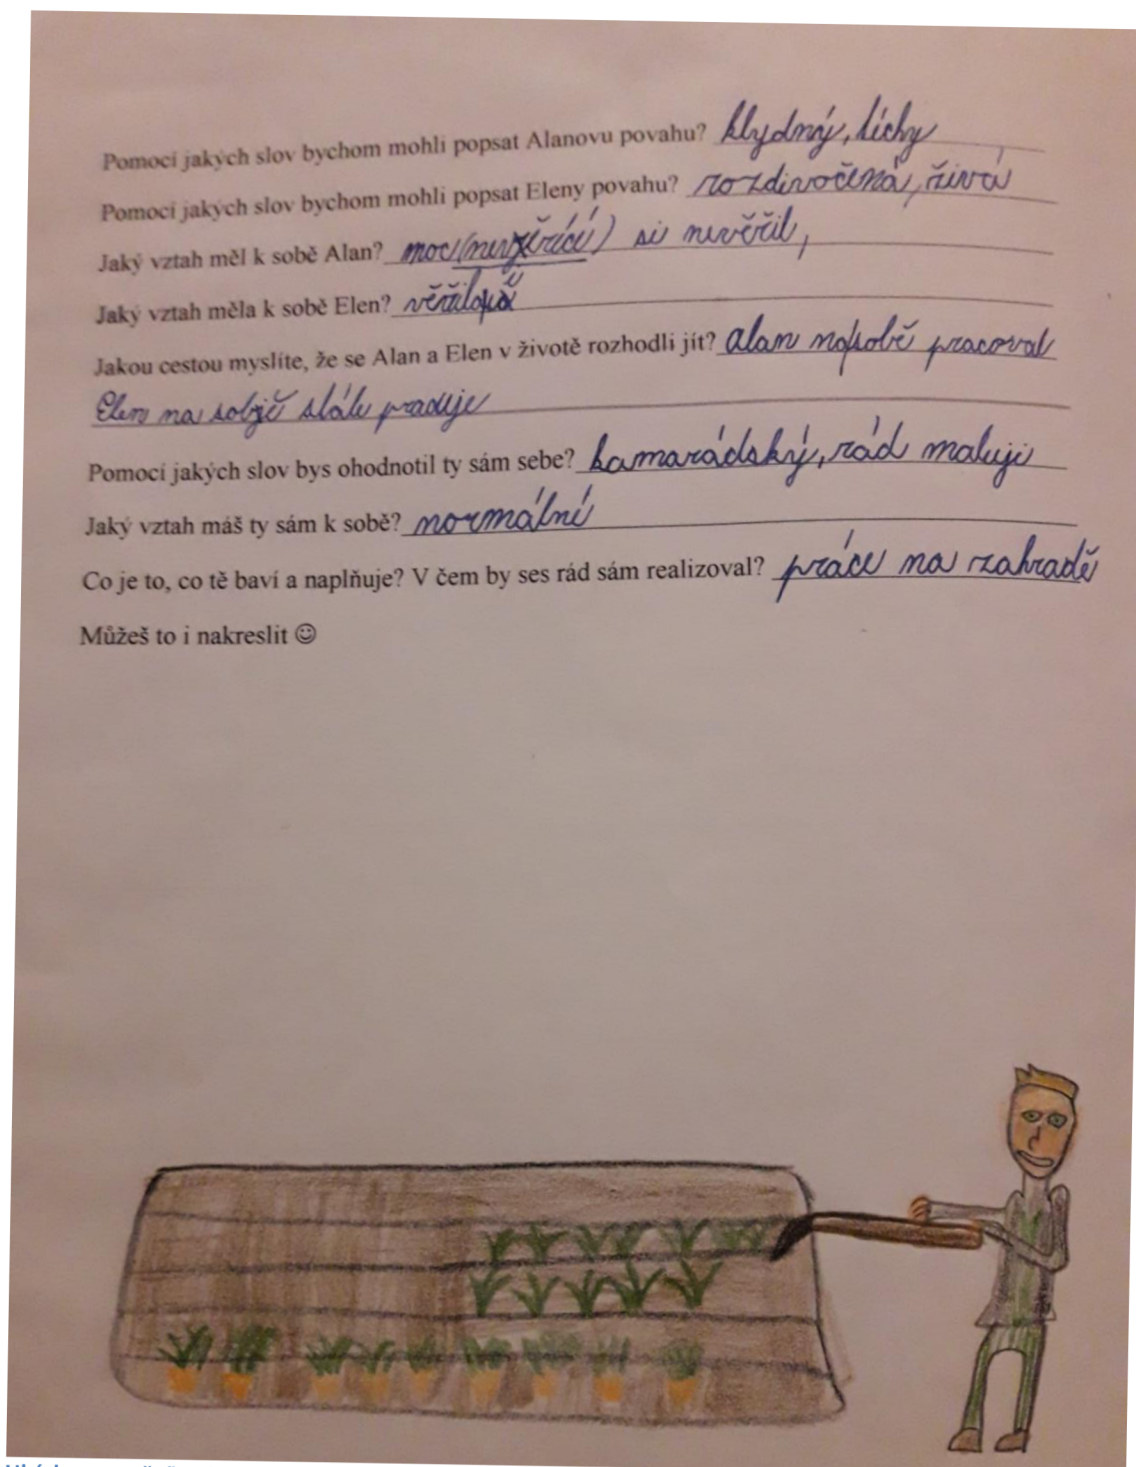 Pomocí jakých slov bychom mohli popsat Alanovu povahu? klydný, tichy
Pomocí jakých slov bychom mohli popsat Eleny povahu? rozdivočená, živá
Jaký vztah měl k sobě Alan? moc si nevěřil,
Jaký vztah měla k sobě Elen?
Jakou cestou myslíte, že se Alan a Elen v životě rozhodli jít? Alan na sobě pracoval
Elen na sobě stále
Pomocí jakých slov bys ohodnotil ty sám sebe? kamarádský, rád maluji
Jaký vztah máš ty sám k sobě? normální
Co je to, co tě baví a naplňuje? V čem by ses rád sám realizoval? práce na zahradě
Můžeš to i nakreslit ☺